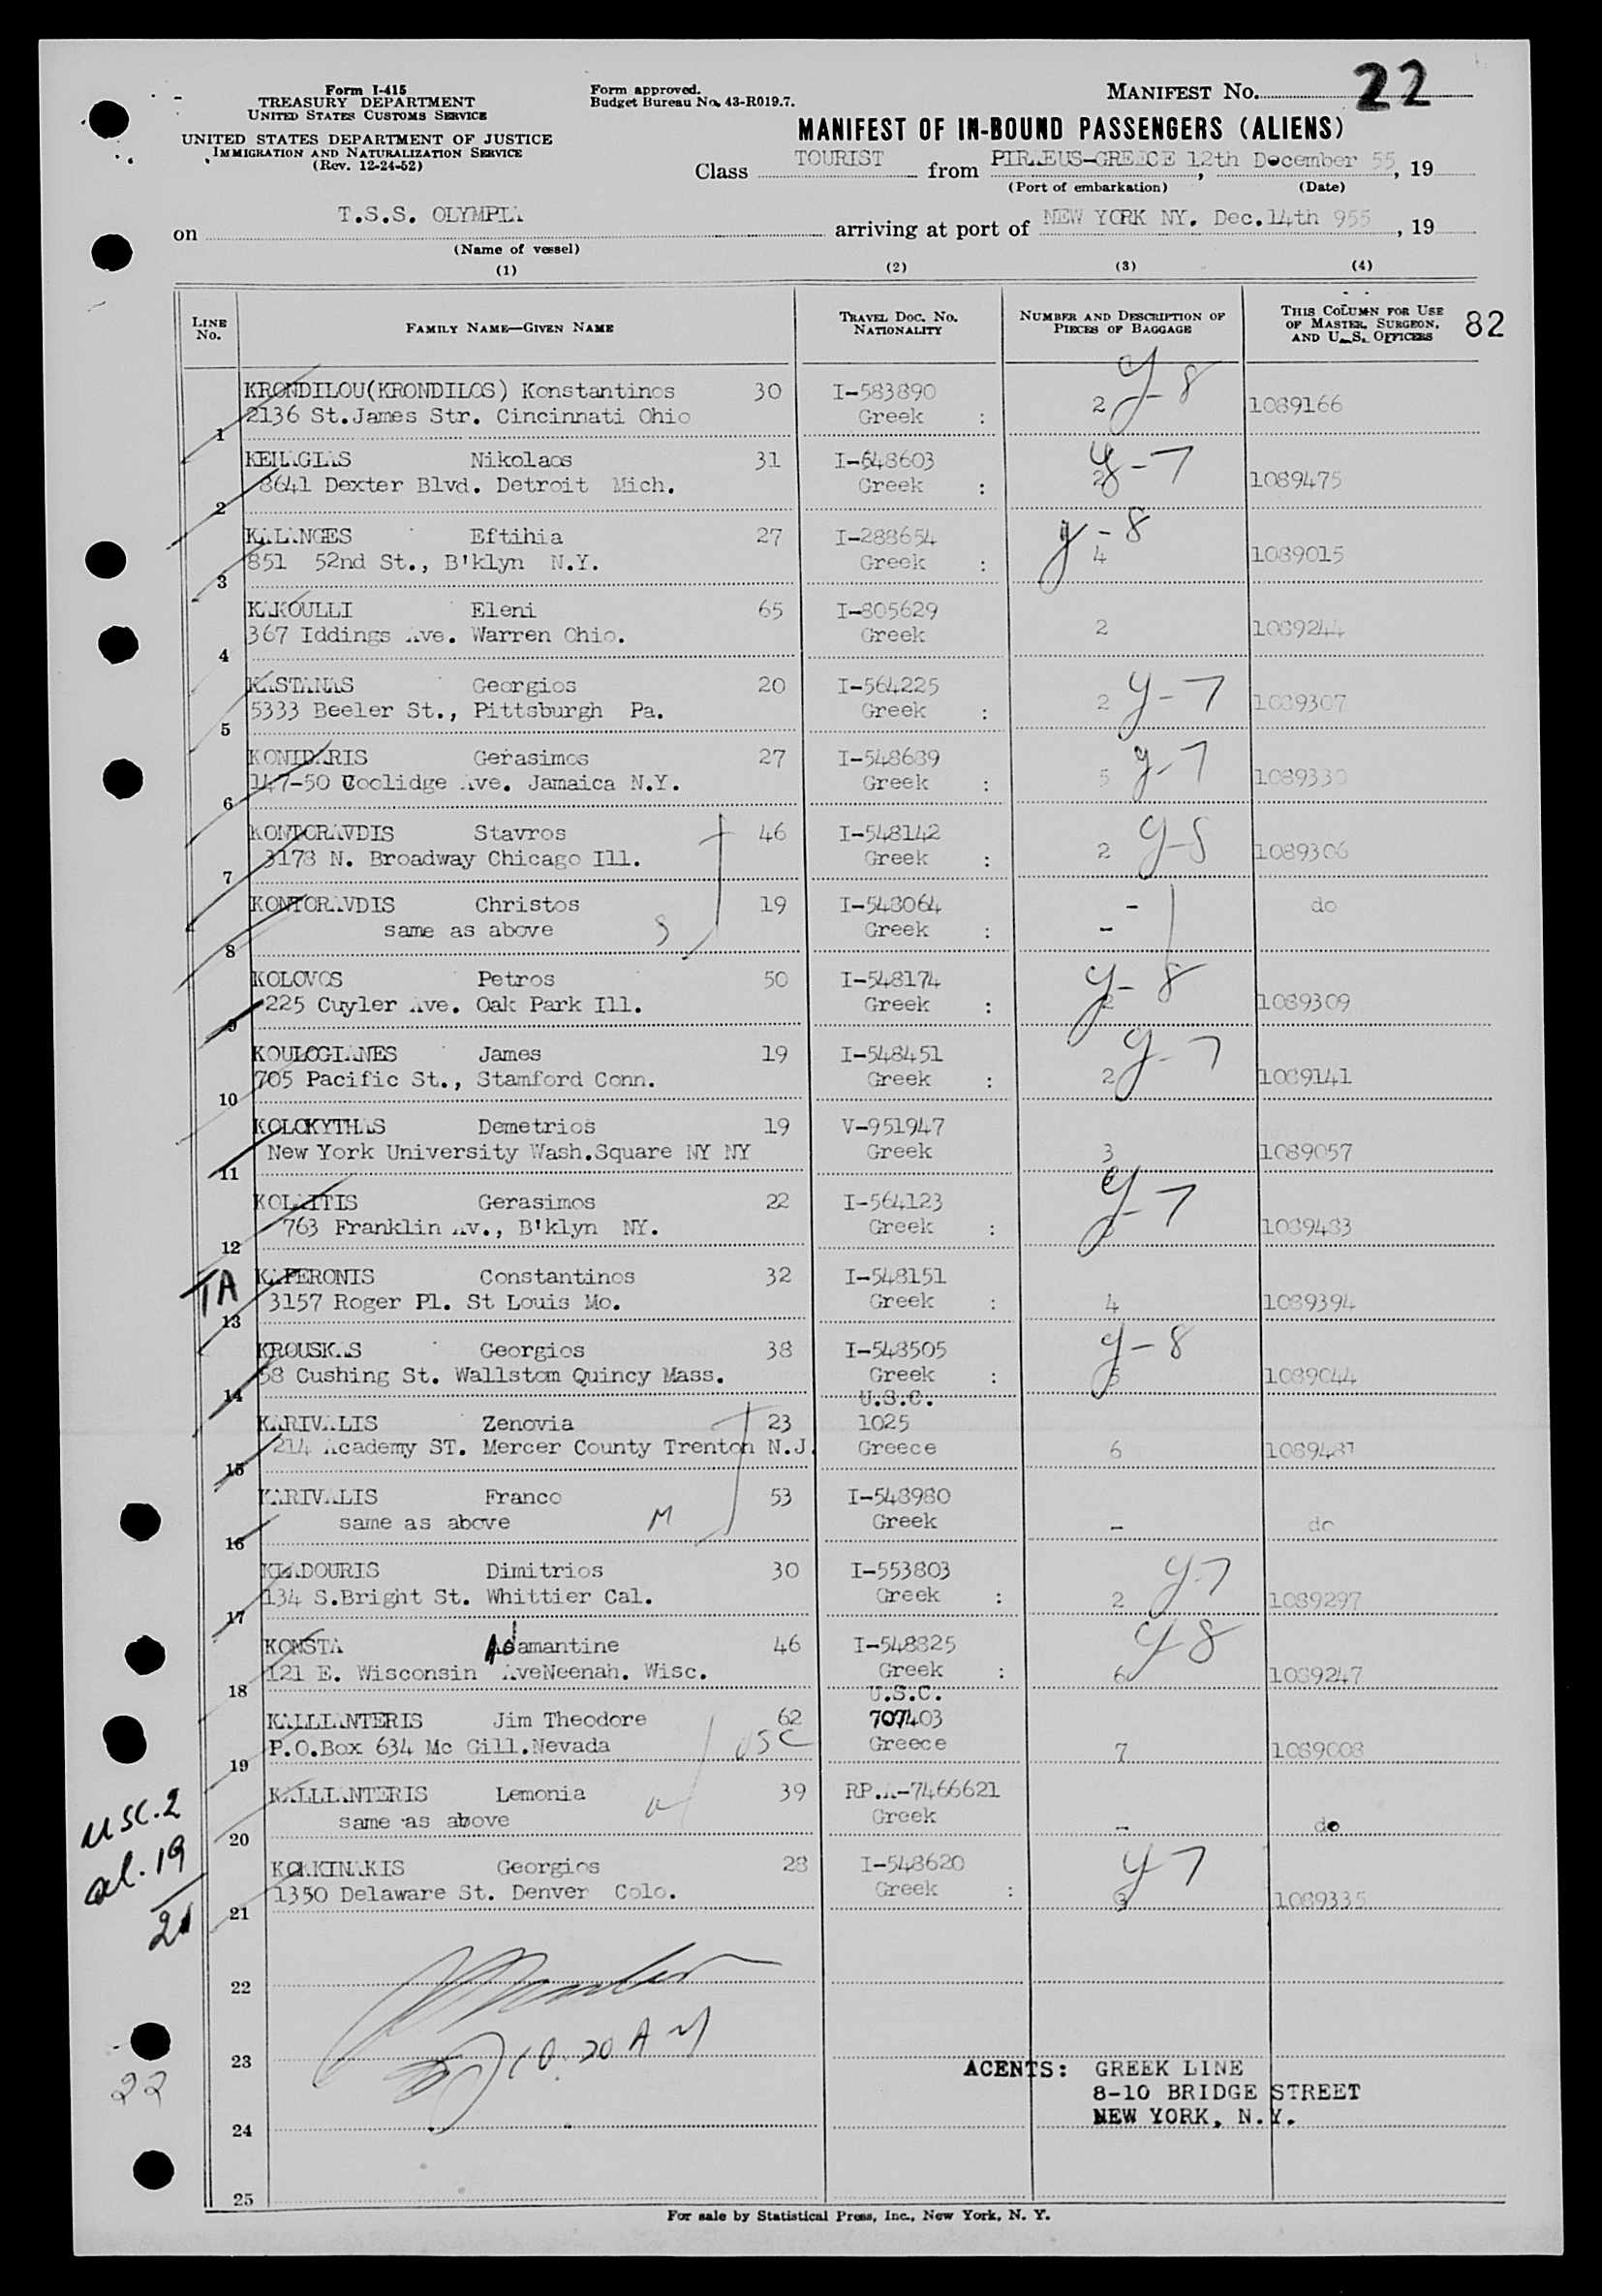 Form I-415
TREASURY DEPARTMENT
UNITED STATES CUSTOMS SERVICE
UNITED STATES DEPARTMENT OF JUSTICE
IMMIGRATION AND NATURALIZATION SERVICE
(Rev. 12-24-52)
Form approved.
Budget Bureau No. 43-R019.7.
MANIFEST No. 22
MANIFEST OF IN-BOUND PASSENGERS (ALIENS)
Class TOURIST from PIRAEUS-GREECE 12th December 55, 19
(Port of embarkation) (Date)
on T.S.S. OLYMPIA arriving at port of NEW YORK NY. Dec.14th 955, 19
(Name of vessel)
(1) (2) (3) (4)
LINE No. FAMILY NAME—GIVEN NAME TRAVEL DOC. No. NATIONALITY NUMBER AND DESCRIPTION OF PIECES OF BAGGAGE THIS COLUMN FOR USE OF MASTER, SURGEON, AND U. S. OFFICERS 82
KRONDILOU(KRONDILOS) Konstantinos 30 I-583890 y-8
1 2136 St.James Str. Cincinnati Ohio Greek : 2 1089166
KEILAGIAS Nikolaos 31 I-548603 y-7
2 8641 Dexter Blvd. Detroit Mich. Greek : 2 1089475
KALANGES Eftihia 27 I-288654 y-8
3 851 52nd St., B'klyn N.Y. Greek : 4 1089015
KAKOULLI Eleni 65 I-805629
4 367 Iddings Ave. Warren Ohio. Greek 2 1089244
KASTANAS Georgios 20 I-564225 y-7
5 5333 Beeler St., Pittsburgh Pa. Greek : 2 1089307
KONIDARIS Gerasimos 27 I-548689 y-7
6 147-50 Coolidge Ave. Jamaica N.Y. Greek : 5 1089330
KONTORAVDIS Stavros 46 I-548142 y-8
7 3178 N. Broadway Chicago Ill. Greek : 2 1089306
KONTORAVDIS Christos 19 I-548064 - do
8 same as above S Greek : -
KOLOVOS Petros 50 I-548174 y-8
9 225 Cuyler Ave. Oak Park Ill. Greek : 2 1089309
KOULOGIANES James 19 I-548451 y-7
10 705 Pacific St., Stamford Conn. Greek : 2 1089141
KOLOKYTHAS Demetrios 19 V-951947
11 New York University Wash.Square NY NY Greek 3 1089057
KOLAITIS Gerasimos 22 I-564123 y-7
12 763 Franklin Av., B'klyn NY. Greek : 1089483
TA KAPERONIS Constantinos 32 I-548151
13 3157 Roger Pl. St Louis Mo. Greek : 4 1089394
KROUSKAS Georgios 38 I-548505 y-8
14 58 Cushing St. Wallstom Quincy Mass. Greek : 5 1089044
U.S.C.
KARIVALIS Zenovia 23 1025
15 214 Academy ST. Mercer County Trenton N.J. Greece 6 1089481
KARIVALIS Franco 53 I-548980
16 same as above M Greek - do
KLADOURIS Dimitrios 30 I-553803 y-7
17 134 S.Bright St. Whittier Cal. Greek : 2 1089297
KONSTA Adamantine 46 I-548825 y-8
18 121 E. Wisconsin AveNeenah. Wisc. Greek : 6 1089247
U.S.C.
KALLIANTERIS Jim Theodore 62 707403
19 P.O.Box 634 Mc Gill.Nevada USC Greece 7 1089008
KALLIANTERIS Lemonia 39 RP.A-7466621
20 same as above w Greek - do
KOKKINAKIS Georgios 28 I-548620 y7
21 1350 Delaware St. Denver Colo. Greek : 3 1089335
USC.2
al. 19
21
22
23 10.20 AM
24
25
22
AGENTS: GREEK LINE
8-10 BRIDGE STREET
NEW YORK, N.Y.
For sale by Statistical Press, Inc., New York, N. Y.